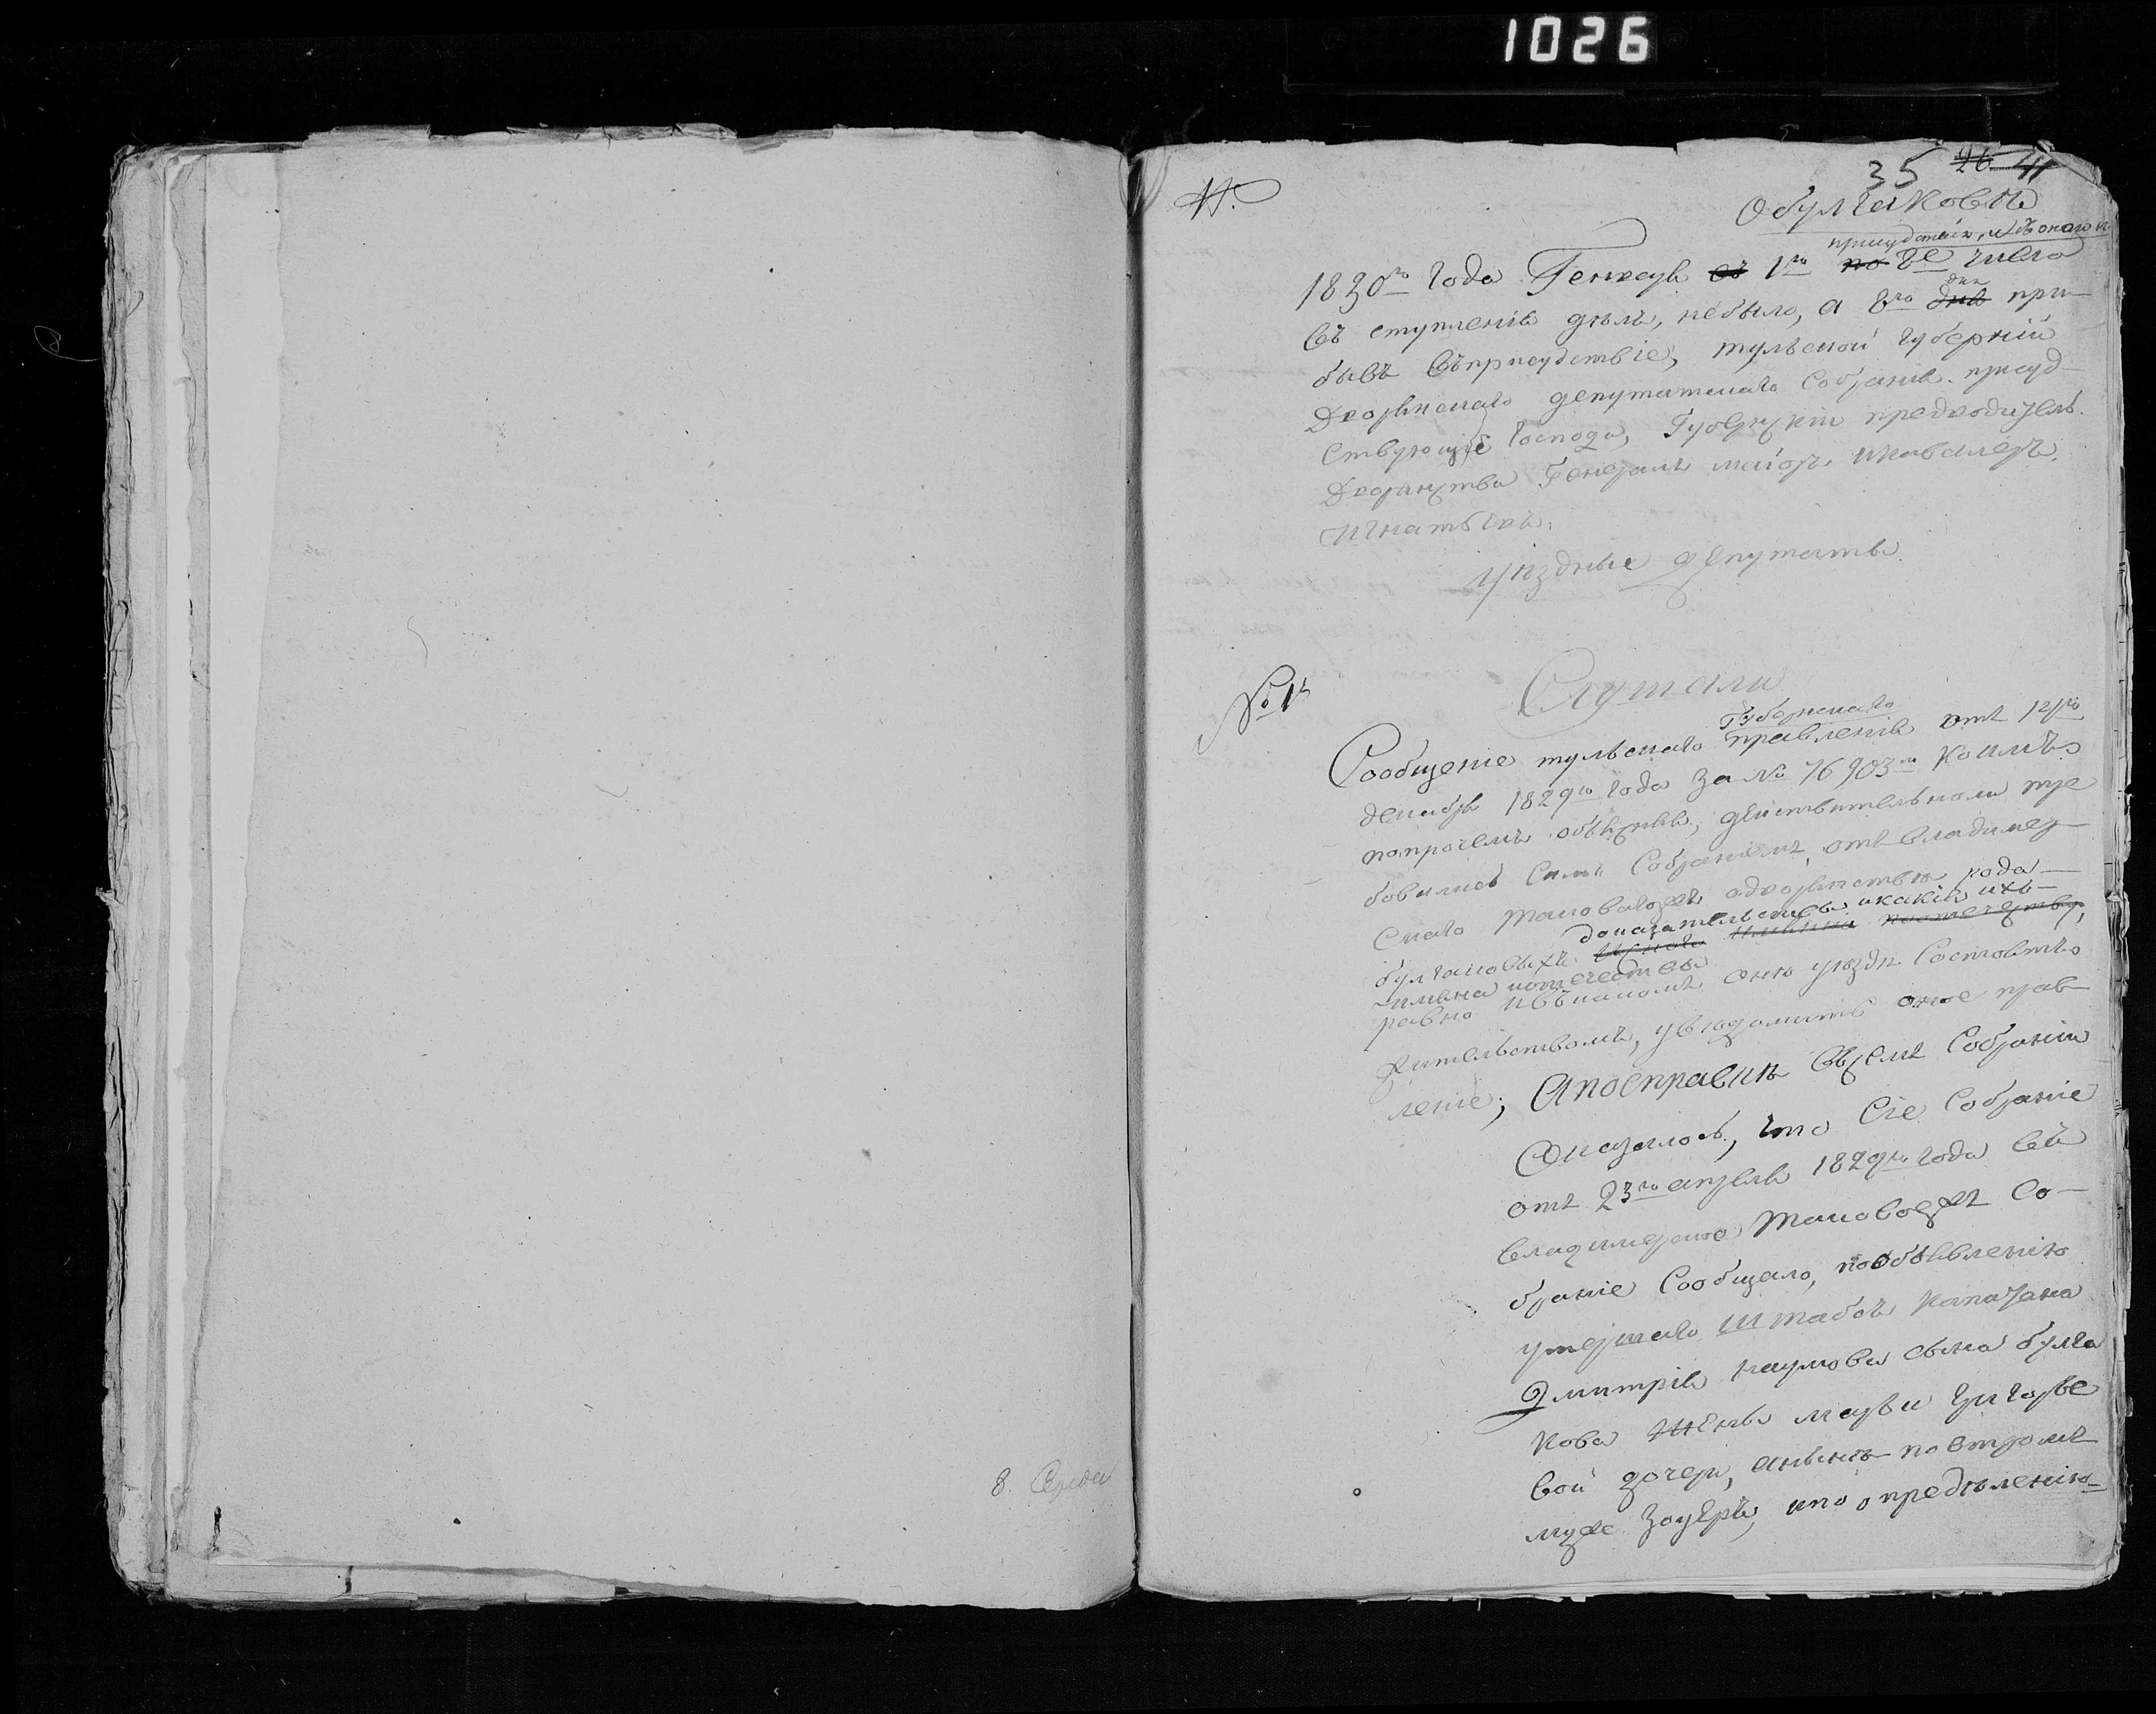 1026
35 26 41
О булгаковѣ
присудствія, и въ оное и
1830го Года Генваря съ 1го по 8е число
въ ступленія дѣлъ, небыло, а 8го дня при-
бывъ въприсудствіе, тульской губерніи
Дворянскаго депутатскаго Собранія присуд-
ствующіе Господа, Губернскій предводитель
Дворянства Генералъ маіоръ икавалеръ
Игнатьевъ.
уѣздные депутаты
№ 1й
Слушали
Губернскаго
Сообщеніе тульскаго правленія отъ 12го
декабря 1829го Года за № 76903м коимъ
попрочемъ объясняя, дѣйствительномъ тре
бовались Симъ Собраніемъ, отъ владимер-
скаго таковагожъ одворянствѣ рода
булгаковыхъ доказательствы икакія ихъ
имяна иотечествы
равно ивъкакомъ оню уѣздѣ Состоятъ
жительствомъ, увѣдомить оное прав
леніе; Апосправкѣ Всемъ Собраніи
Оказалось, что Сіе Собраніе
отъ 23го апреля 1829го Года въ
владимерское таковоежъ Со-
браніе Сообщало, пообъявленію
умершаго штабсъ капитана
Дмитрія наумова сына булга
кова жены марьи григорье
вой дочери, анынѣ повтромъ
мужѣ , ипо опредѣленію
8. Середа